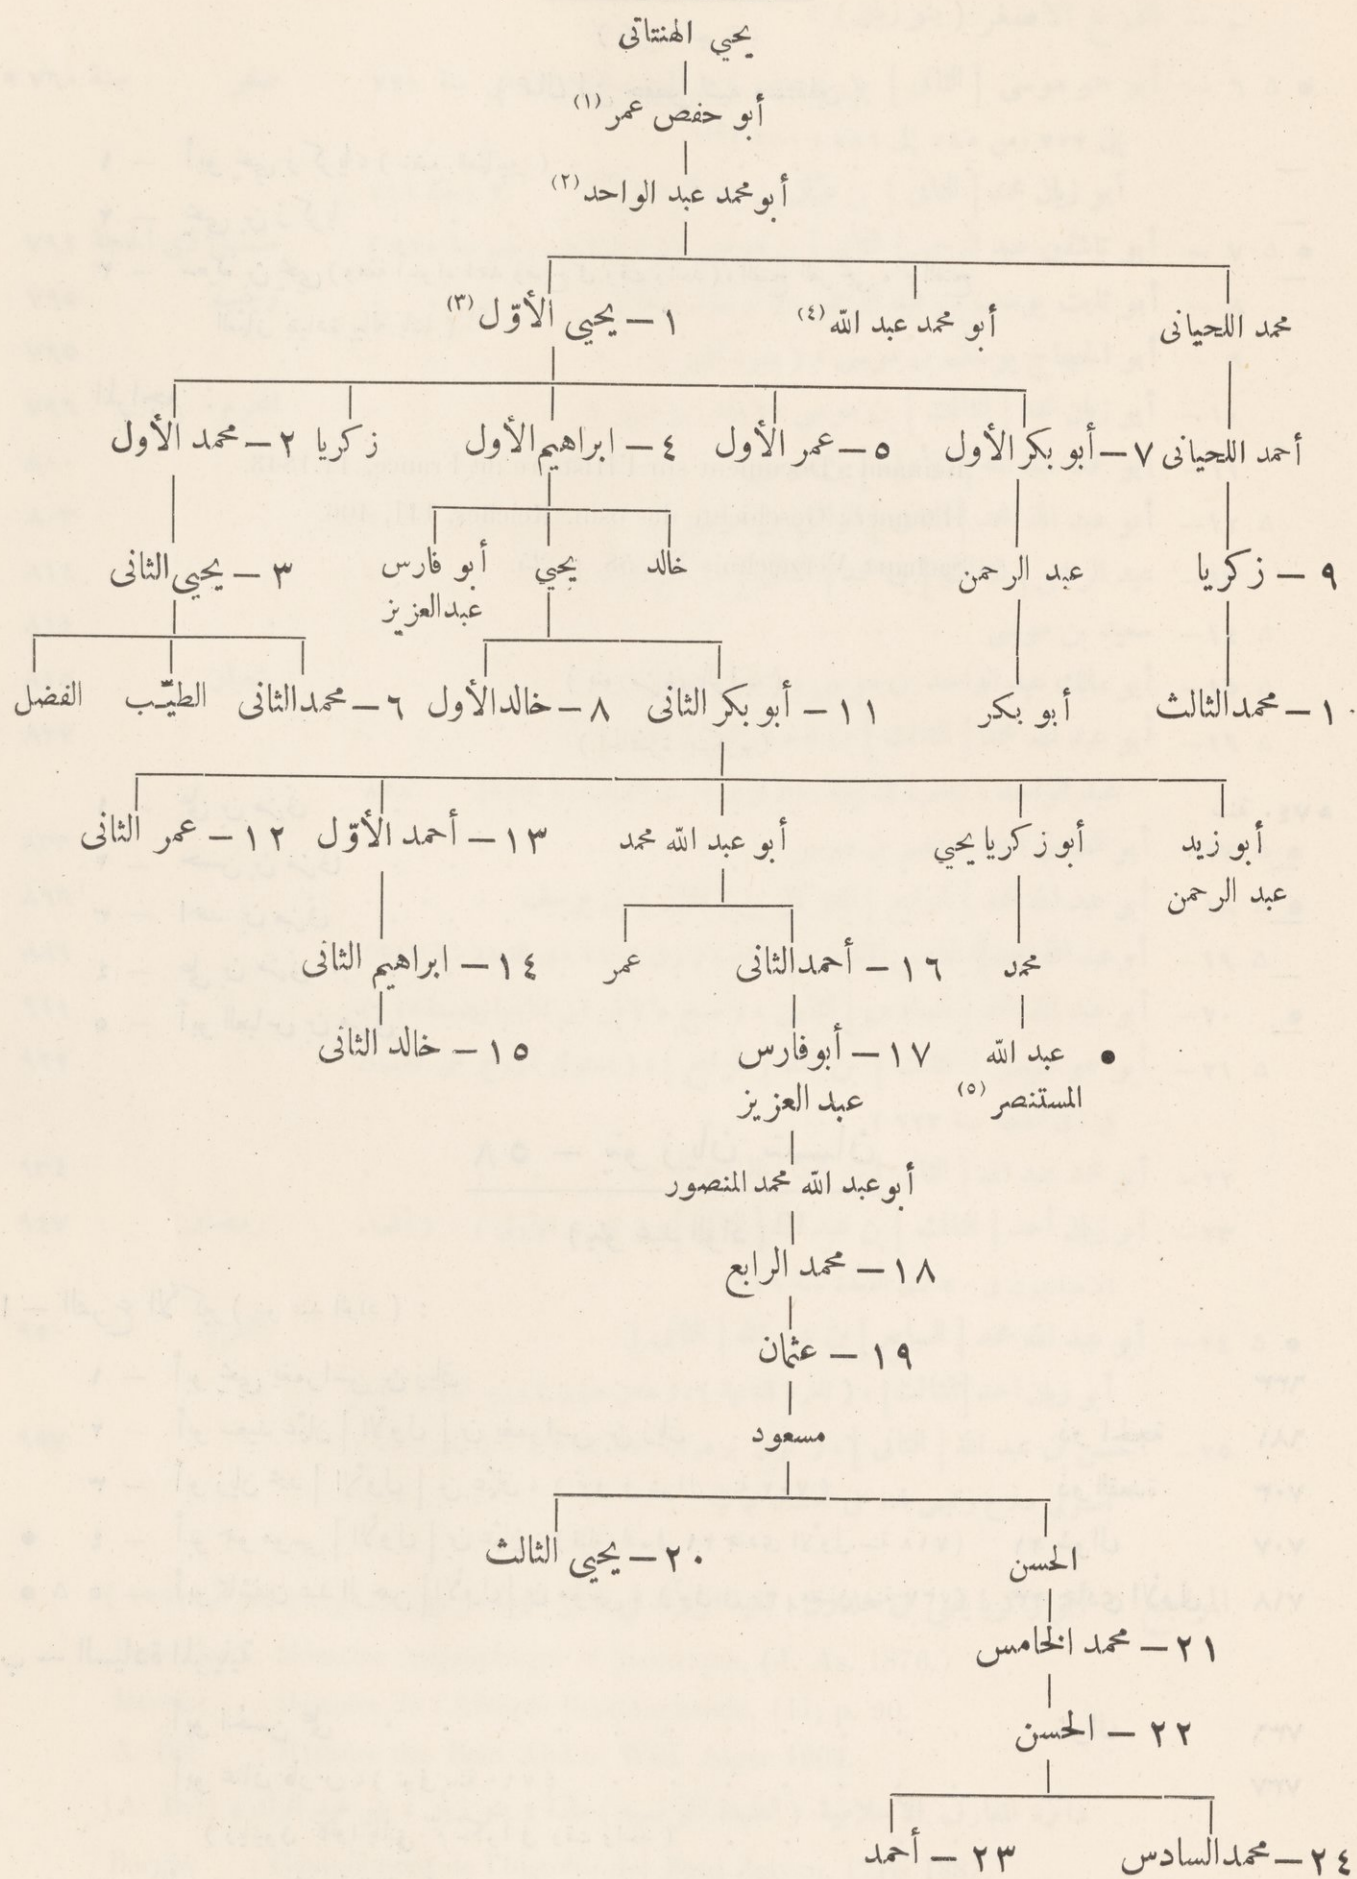 يحيي الهنتاتى
أبو حفص عمر (١)
أبو محمد عبد الواحد (٢)
محمد اللحيانى
أبو محمد عبد الله (٤)
١ — يحيي الأوّل (٣)
أحمد اللحيانى
٧ — أبو بكر الأول
٥ — عمر الأول
٤ — ابراهيم الأول
زكريا
٢ — محمد الأول
٩ — زكريا
عبد الرحمن
خالد
يحيي
أبو فارس
عبد العزيز
٣ — يحيي الثانى
١٠ — محمد الثالث
أبو بكر
١١ — أبو بكر الثانى
٨ — خالد الأول
٦ — محمد الثانى
الطيّب
الفضل
أبو زيد
عبد الرحمن
أبو زكريا يحيي
أبو عبد الله محمد
١٣ — أحمد الأوّل
١٢ — عمر الثانى
محمد
١٦ — أحمد الثانى
عمر
١٤ — ابراهيم الثانى
• عبد الله
المستنصر (٥)
١٧ — أبو فارس
عبد العزيز
١٥ — خالد الثانى
أبو عبد الله محمد المنصور
١٨ — محمد الرابع
١٩ — عثمان
مسعود
الحسن
٢٠ — يحيي الثالث
٢١ — محمد الخامس
٢٢ — الحسن
٢٤ — محمد السادس
٢٣ — أحمد